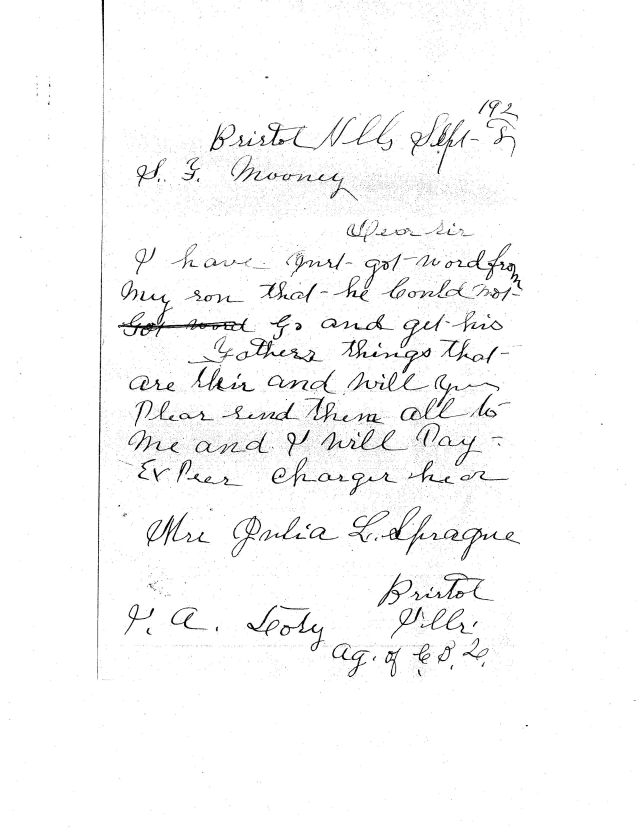 192
Bristol Ills Sept- 8
S. F. Mooney
Dear Sir
I have Just got word from
my son that he Could not
Got word Go and get his
Fathers things that
are thir and will you
Pleas send them all to
me and I will Pay
ExPeer Charger hear
Mrs Julia L. Sprague
Bristol
I. A. Ills.
Ag. of C B. Q.